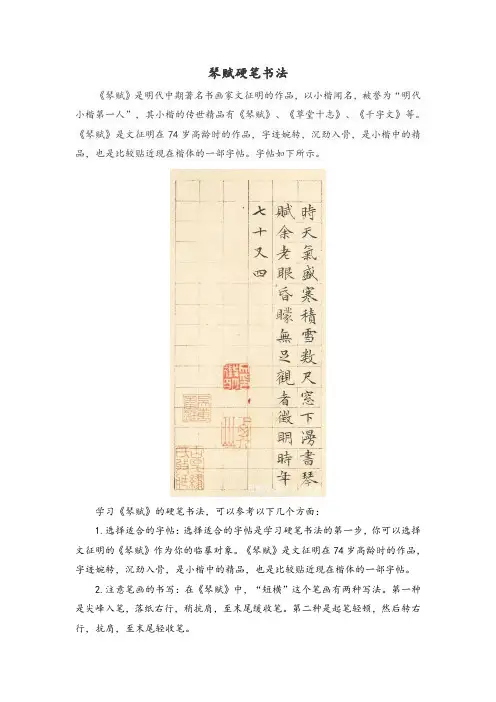 琴赋硬笔书法
《琴赋》是明代中期著名书画家文征明的作品，以小楷闻名，被誉为“明代
小楷第一人”，其小楷的传世精品有《琴赋》、《草堂十志》、《千字文》等。
《琴赋》是文征明在74岁高龄时的作品，字迹婉转，沉劲入骨，是小楷中的精
品，也是比较贴近现在楷体的一部字帖。字帖如下所示。
時天氣盛寒積雪数尺窓下漫書琴
賦余老眼昏矇無足觀者徵明時年
七十又四
学习《琴赋》的硬笔书法，可以参考以下几个方面：
1.选择适合的字帖：选择适合的字帖是学习硬笔书法的第一步，你可以选择
文征明的《琴赋》作为你的临摹对象。《琴赋》是文征明在74岁高龄时的作品，
字迹婉转，沉劲入骨，是小楷中的精品，也是比较贴近现在楷体的一部字帖。
2.注意笔画的书写：在《琴赋》中，“短横”这个笔画有两种写法。第一种
是尖峰入笔，落纸右行，稍抗肩，至末尾缓收笔。第二种是起笔轻顿，然后转右
行，抗肩，至末尾轻收笔。